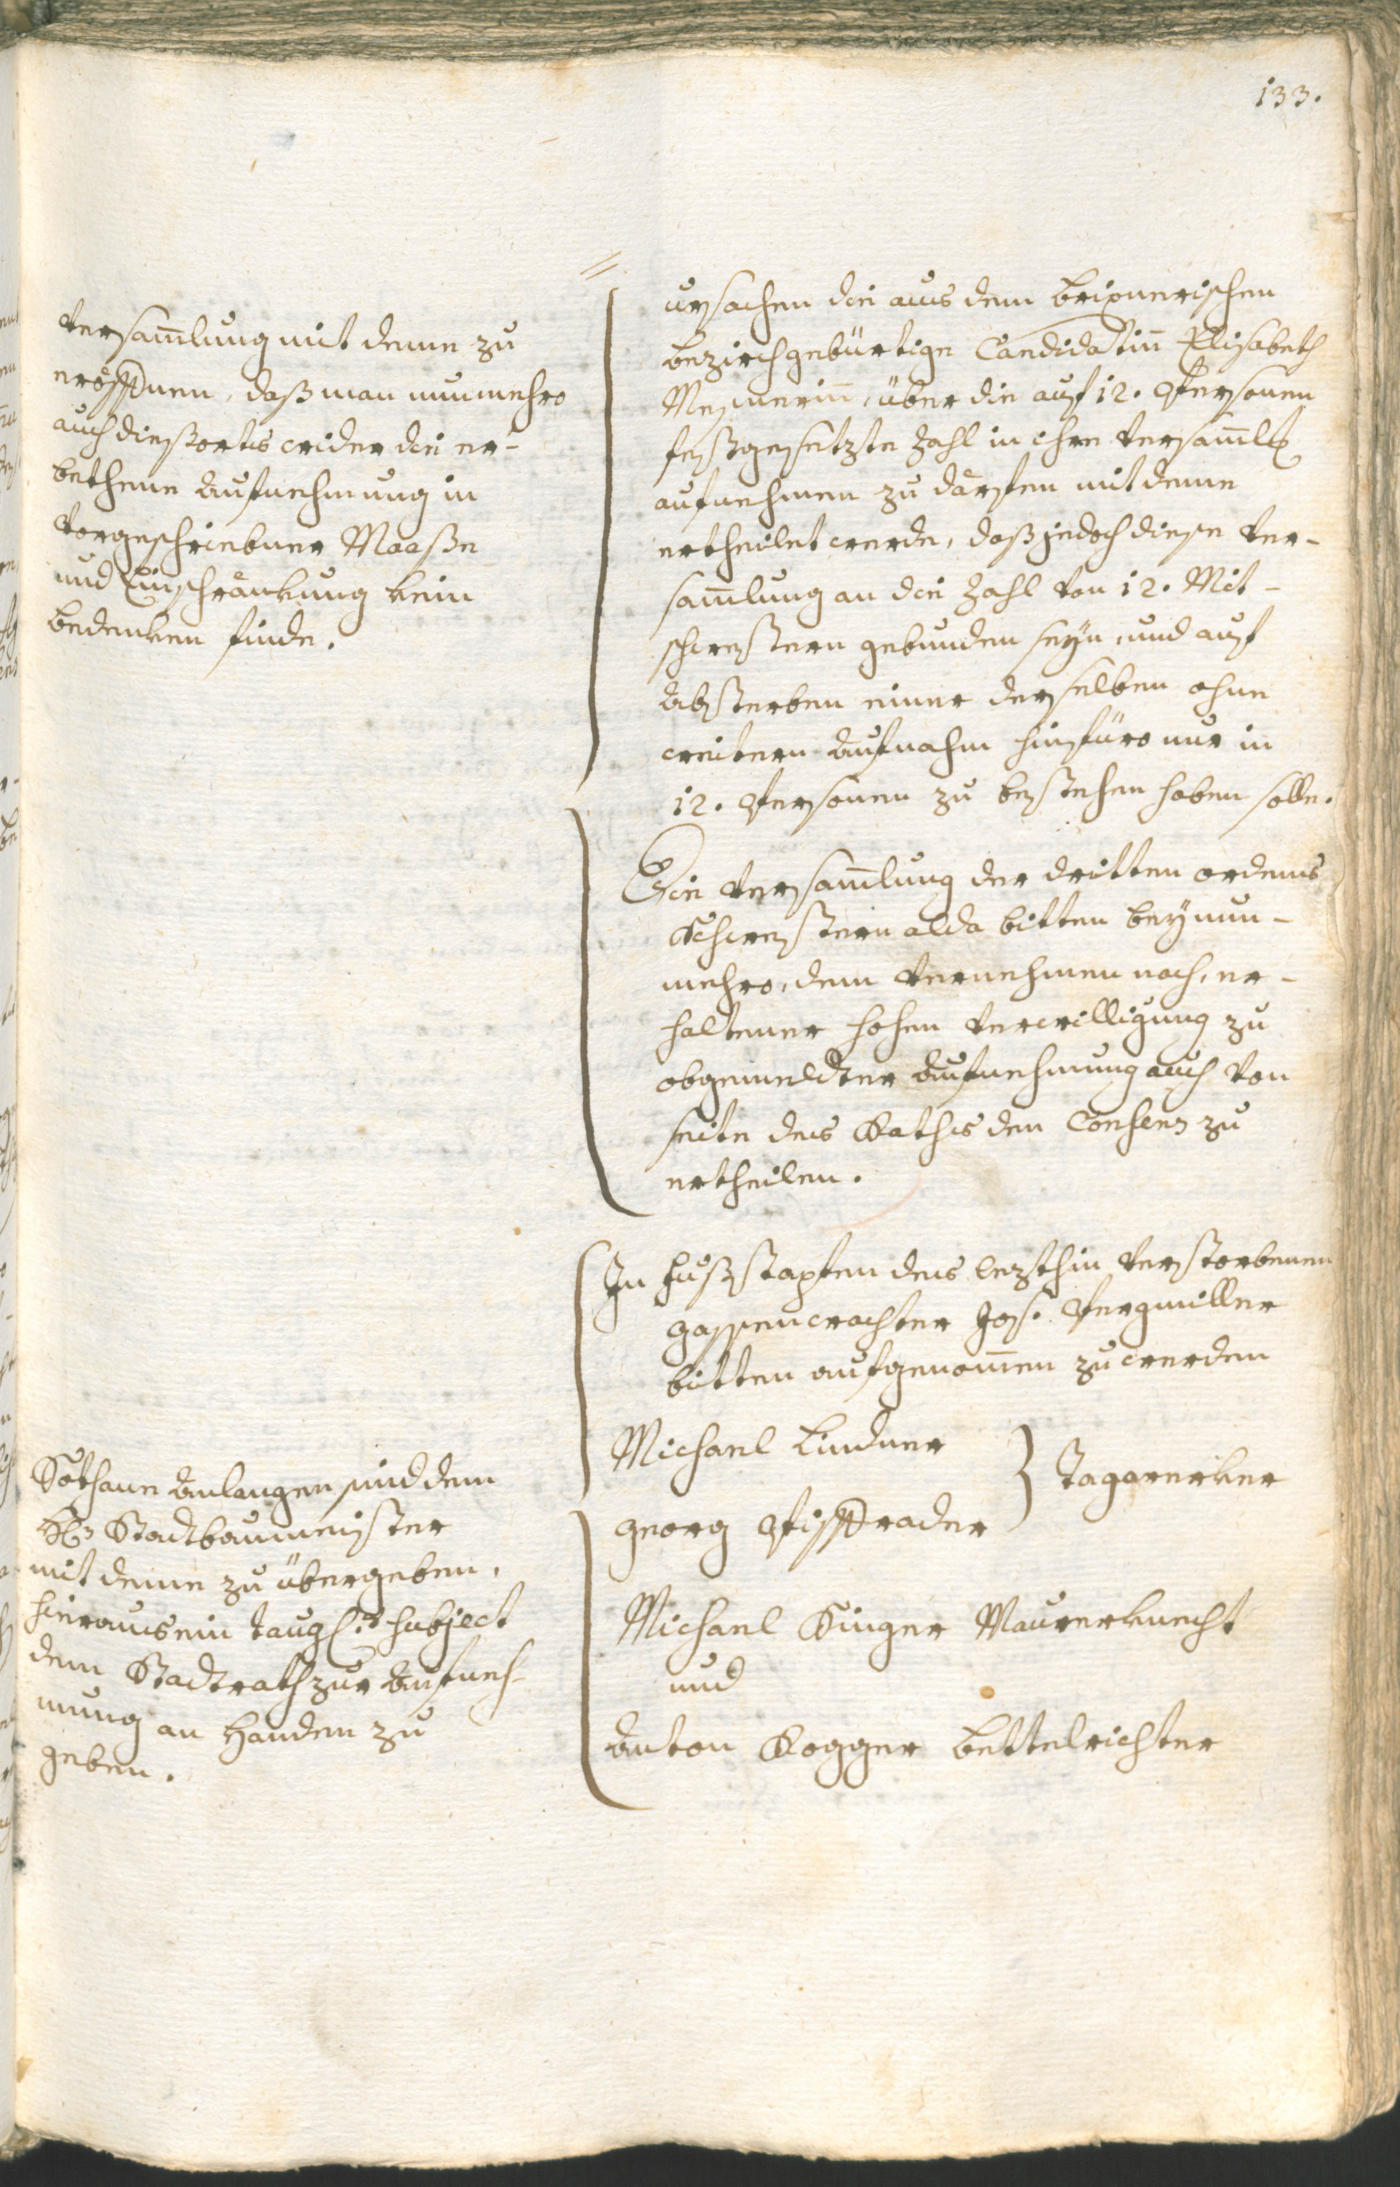 133.
Versam̄lung mit deme zu
eröffnen, daß man nunmehro
auch diessorts wider die er-
bethene Aufnehmung in
vorgeschriebner Maaße
und Einschränkung kein
bedenken finde.
ursachen die aus dem brixnerischen
bezirch gebürtige Candidatin̄ Elisabeth
Mesnerin̄, über die auf 12. Personen
festgesetzte Zahl in ihre Versam̄lg
aufnehmen zu därfen mit deme
ertheilet werde, daß jedoch diese Ver-
sam̄lung an die Zahl von 12. Mit-
schwestern gebunden seÿn, und auf
Absterben einer derselben ohne
weitern Aufnahm hinfüro nur in
12. Personen zu bestehen haben solle.
Die Versam̄lung der dritten ordens
Schwestern alda bitten beÿ nun-
mehro, dem Vernehmen nach, er-
haltener hohen Verwilligung zu
obgemeldter Aufnehmung auch von
seite des Raths den Consens zu
ertheilen.
In fußstapfen des lezthin verstorbenen
gassenwachter Jos. Pergmiller
bitten aufgenom̄en zu werden
Michael Lindner
Tagwerker
georg Pissrader
Michael Kinger Maurerknecht
und
Anton Kogger bettelrichter
Sothane Anlangen sind dem
H. Stadtbaumeister
mit deme zu übergeben,
hieraus ein taugl. subject
dem Stadtrath zur Aufneh-
mung an Handen zu
geben.